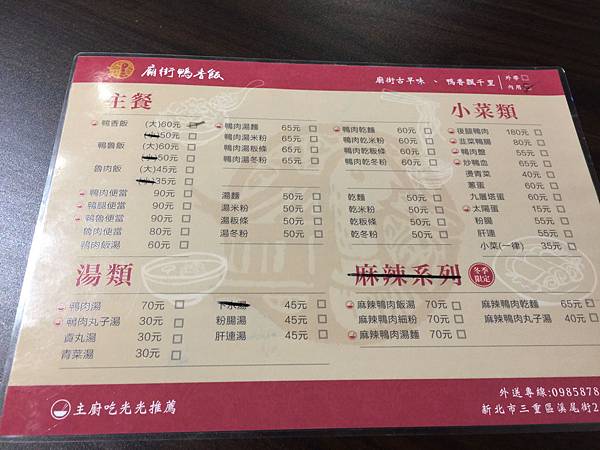 廟街鴨香飯
廟街古早味、鴨香飄千里
外帶
內用
主餐
鴨香飯 (大)60元
50元
鴨魯飯 (大)60元
50元
魯肉飯 (大)45元
35元
鴨肉便當 90元
鴨腿便當 90元
鴨魯便當 90元
魯肉便當 80元
鴨肉飯湯 60元
鴨肉湯麵 65元
鴨肉湯米粉 65元
鴨肉湯板條 65元
鴨肉湯冬粉 65元
湯麵 50元
湯米粉 50元
湯板條 50元
湯冬粉 50元
鴨肉乾麵 60元
鴨肉乾米粉 60元
鴨肉乾板條 60元
鴨肉乾冬粉 60元
乾麵 50元
乾米粉 50元
乾板條 50元
乾冬粉 50元
小菜類
後腿鴨肉 180元
韭菜鴨腸 80元
鴨肉盤 55元
炒鴨血 65元
燙青菜 40元
蔥蛋 60元
九層塔蛋 60元
太陽蛋 15元
粉腸 55元
肝連 55元
小菜(一律) 35元
湯類
鴨肉湯 70元
鴨肉丸子湯 30元
貢丸湯 30元
青菜湯 30元
湯 45元
粉腸湯 45元
肝連湯 45元
麻辣系列
冬季限定
麻辣鴨肉飯湯 70元
麻辣鴨肉細粉 70元
麻辣鴨肉湯麵 70元
麻辣鴨肉乾麵 65元
麻辣鴨肉丸子湯 40元
主廚吃光光推薦
外送專線:0985878
新北市三重區溪尾街2